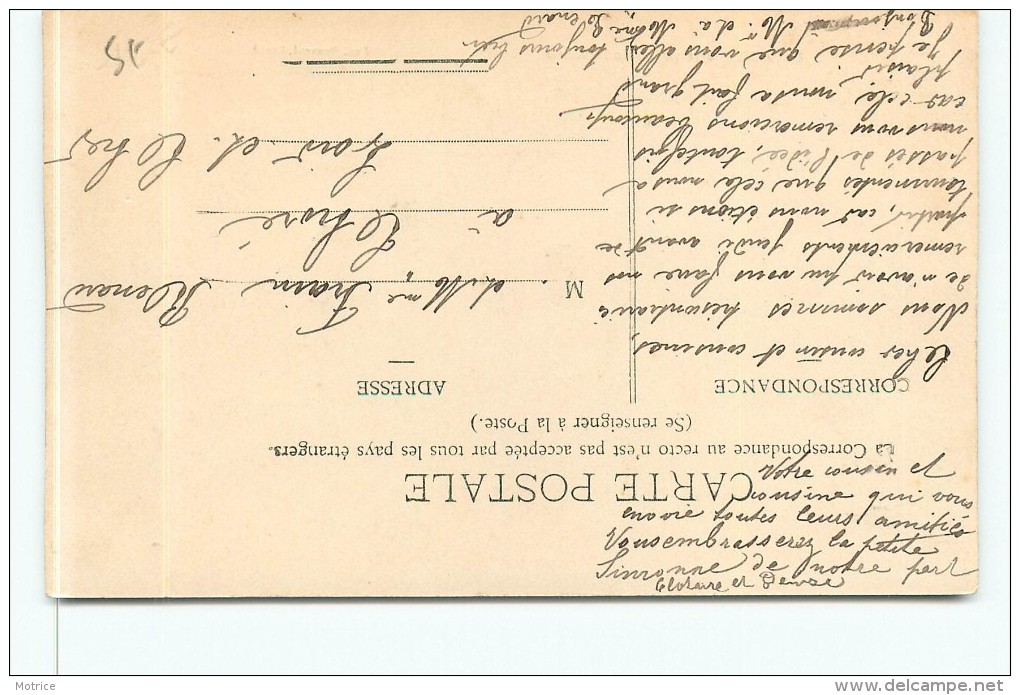 CARTE POSTALE
La Correspondance au recto n'est pas acceptée par tous les pays étrangers.
(Se renseigner à la Poste.)
CORRESPONDANCE
ADRESSE
Cher cousin et cousines,
Nous sommes très contrariés
de n'avoir pu vous faire nos
remerciements jeudi avant de
partir, car nous étions si
tourmentés que cela nous a
passés de l'idée, toutefois
nous vous remercions beaucoup
car cela nous a fait grand
plaisir
Je pense que vous allez toujours bien
Bonjour à Mr et à Mme
M et Mme Frain
à Choré
Loir et Cher
Votre cousin et
cousine qui vous
envoie toutes leurs amitiés
Vous embrasserez la petite
Simonne de notre part
Clotaire et Denise
15
Motrice
delcampe.net